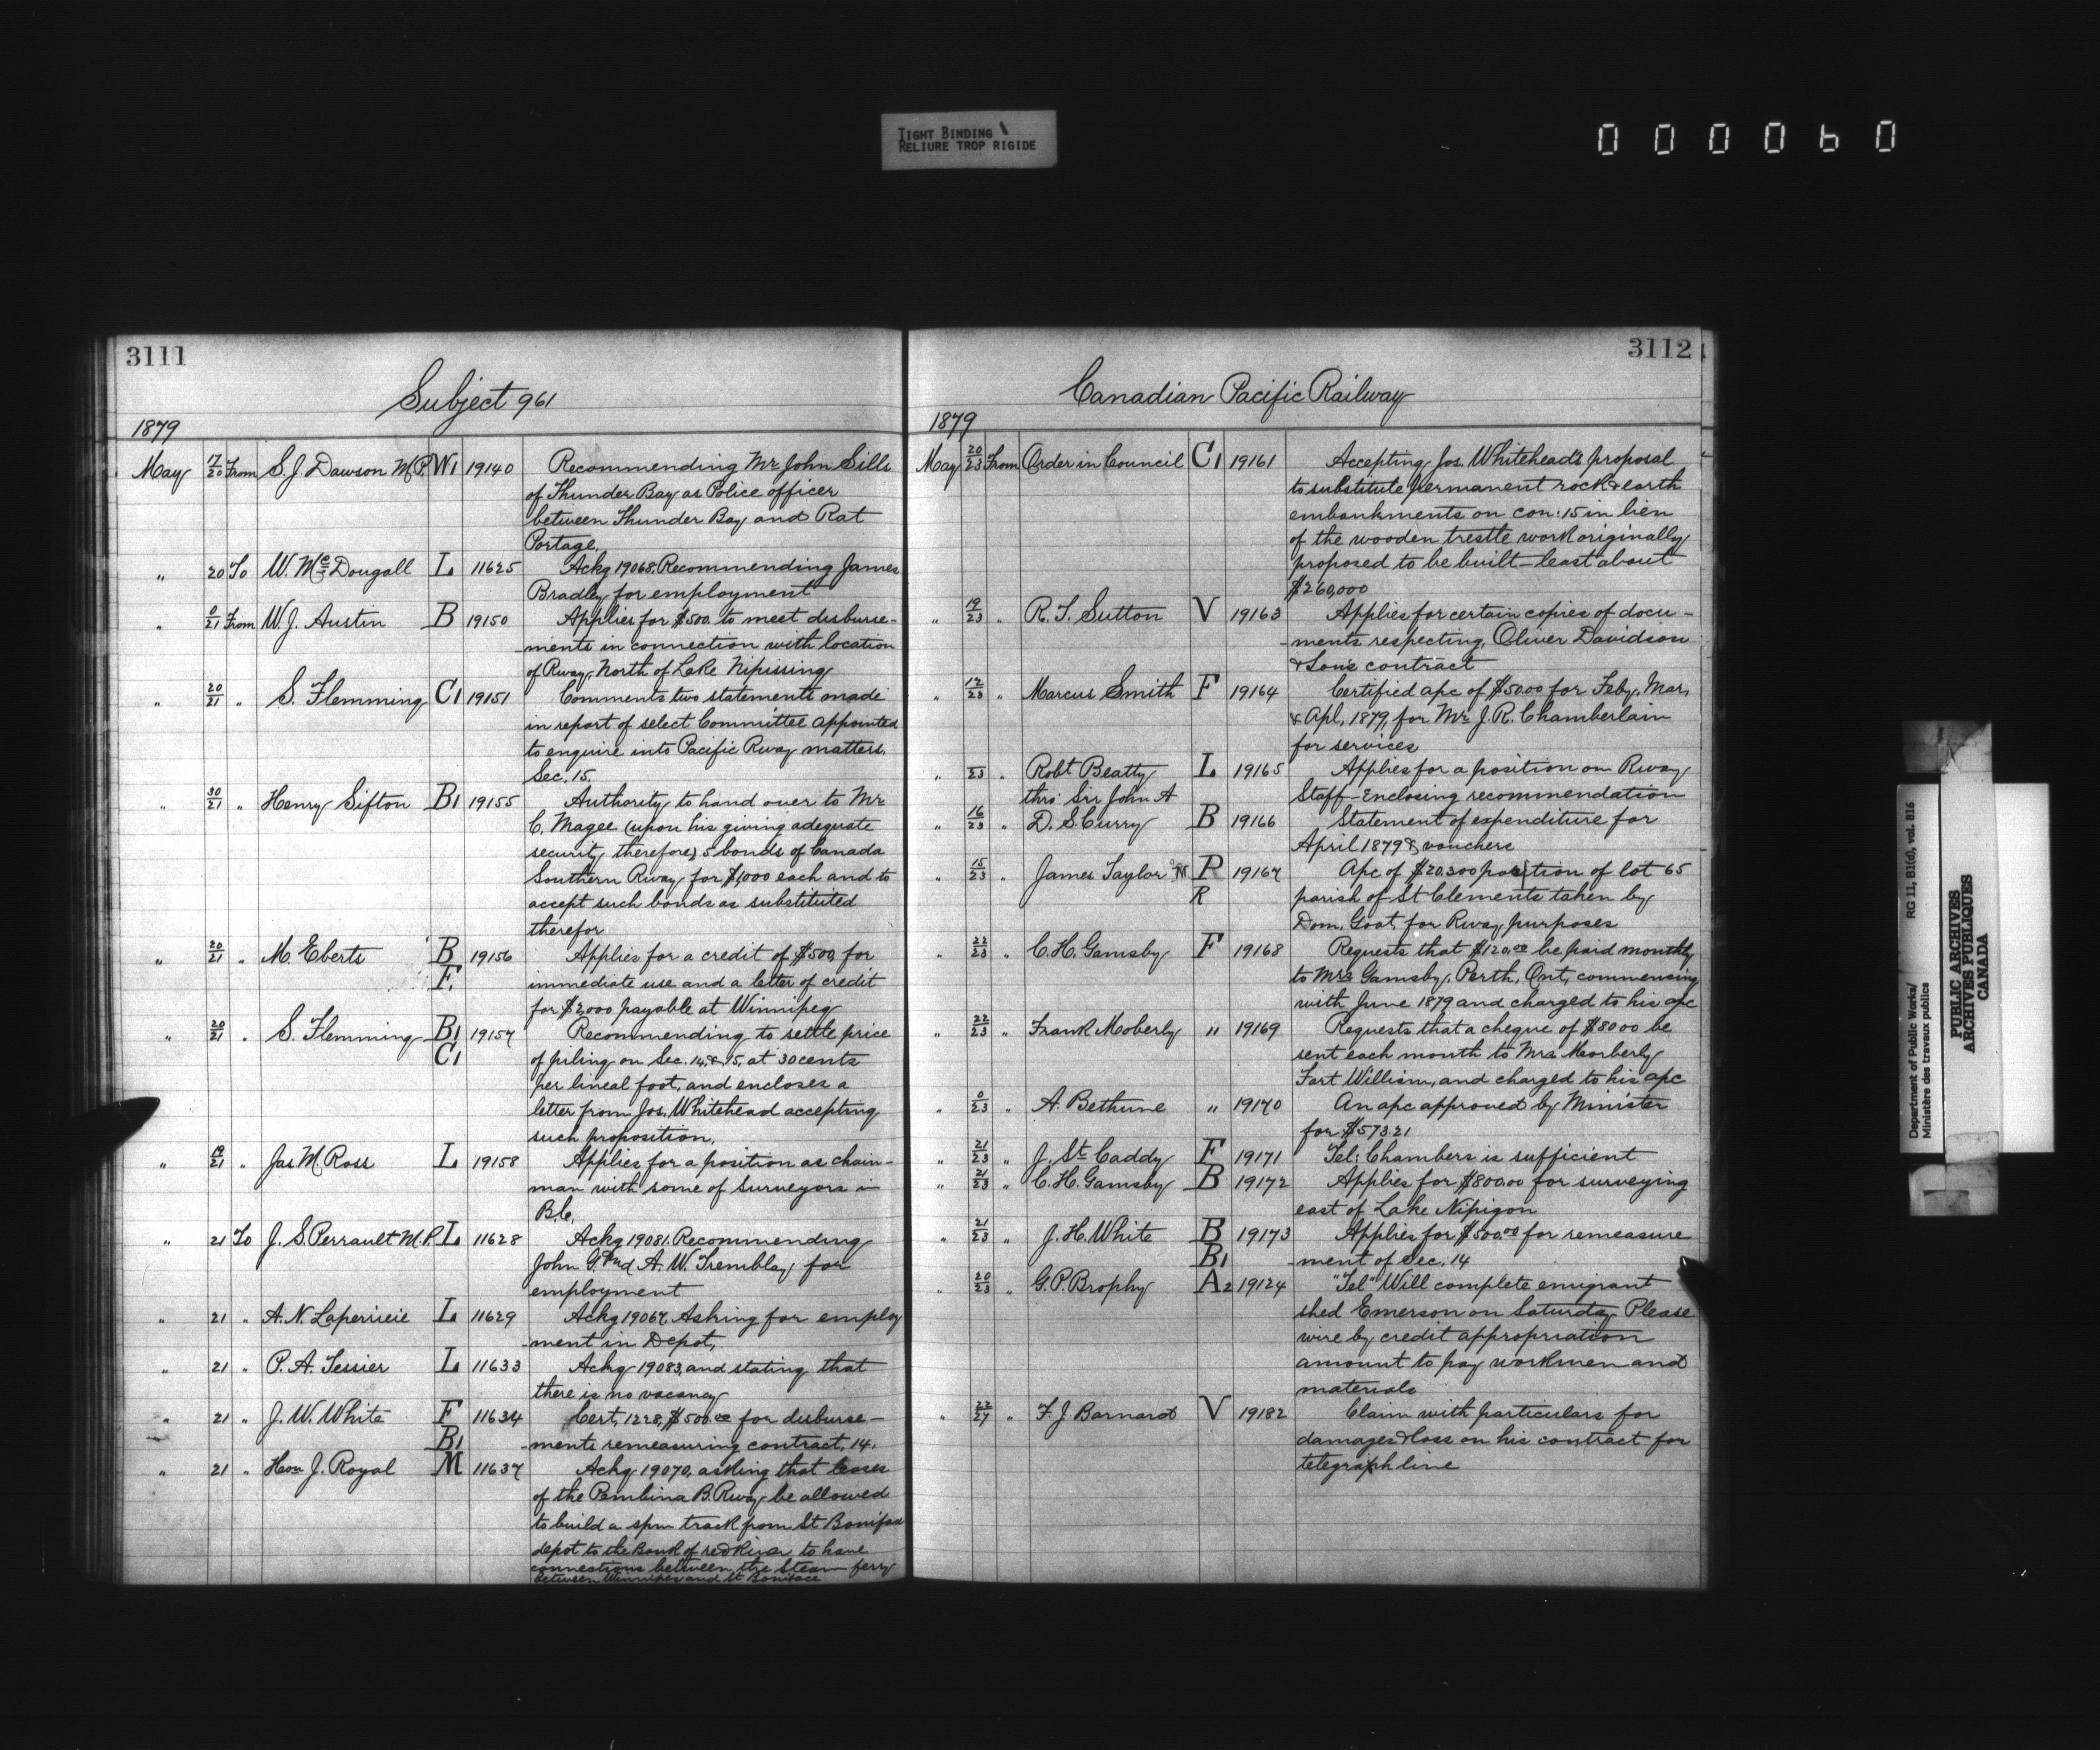 TIGHT BINDING
RELIURE TROP RIGIDE
000060
3111
Subject 961
1879
May 17/20 From S. J. Dawson M.P. W1 19140 Recommending Mr John Sills
of Thunder Bay as Police officer
between Thunder Bay and Rat
Portage.
" 20 To W. McDougall L 11625 Ackg 19068, Recommending James
Bradley for employment
" 0/21 From W. J. Austin B 19150 Applies for $500. to meet disburse-
-ments in connection with location
of Rway, North of Lake Nipissing
" 20/21 " S. Flemming C1 19151 Comments two statements made
in report of select Committee appointed
to enquire into Pacific Rway matters.
Sec. 15.
" 30/21 " Henry Sifton B1 19155 Authority to hand over to Mr
C. Magee (upon his giving adequate
security therefore) 5 bonds of Canada
Southern Rway for $1,000 each and to
accept such bonds as substituted
therefor
" 20/21 " M. Eberts B 19156 Applies for a credit of $500, for
F. immediate use and a letter of credit
for $2,000 payable at Winnipeg
" 20/21 " S. Flemming B1 19157 Recommending to settle price
C1 of piling on Sec. 14, & 15, at 30 cents
per lineal foot, and encloses a
letter from Jos. Whitehead accepting
such proposition.
" 19/21 " Jas M. Ross L 19158 Applies for a position as chain-
man with some of Surveyors in
B.C.
" 21 To J. S. Perrault M.P. L 11628 Ackg 19081. Recommending
John G. and A. W. Tremblay for
employment
" 21 " A. N. L 11629 Ackg 19067, Asking for employ
-ment in Depot,
" 21 " P. A. Tessier L 11633 Ackg 19083, and stating that
there is no vacancy
" 21 " J. W. White F 11634 Cert. 1228, $500.00 for disburse-
B1 -ments remeasuring contract, 14.
" 21 " Hon J. Royal M 11637 Ackg 19070, asking that leases
of the Pembina B. Rway be allowed
to build a spur track from St Boniface
depot to the Bank of red River to have
connections between the Steam ferry
between Winnipeg and St Boniface
3112
Canadian Pacific Railway
1879
May 20/23 From Order in Council C1 19161 Accepting Jos. Whitehead's proposal
to substitute permanent rock & earth
embankments on con: 15 in lieu
of the wooden trestle work originally
proposed to be built - least about
$260,000
" 19/23 " R. T. Sutton V 19163 Applies for certain copies of docu-
-ments respecting, Oliver Davidson
& Sons contract
" 12/23 " Marcus Smith F 19164 Certified apc of $50.00 for Feby, Mar,
& Apl, 1879, for Mr J. R. Chamberlain
for services
" /23 " Robt Beatty L 19165 Applies for a position on Rway
thro' Sir John A Staff - Enclosing recommendation
" 16/23 " D. S. Curry B 19166 Statement of expenditure for
April 1879 & vouchers
" 15/23 " James Taylor P 19167 Apc of $20,300 portion of lot 65
R parish of St Clements taken by
Dom. Govt. for Rway purposes
" 22/23 " C. H. Gamsby F 19168 Requests that $120.00 be paid monthly
to Mrs Gamsby, Perth, Ont, commencing
with June 1879 and charged to his apc
" 22/23 " Frank Moberly " 19169 Requests that a cheque of $80 00 be
sent each month to Mrs Moorberly
Fort William, and charged to his apc
" 0/23 " A. Bethune " 19170 An apc approved by Minister
for $573.21
" 21/23 " J. St. Caddy F 19171 Tel: Chambers is sufficient
" 21/23 " C. H. Gamsby B 19172 Applies for $800.00 for surveying
east of Lake Nipigon
" 21/23 " J. H. White B 19173 Applies for $500.00 for remeasure
B1 -ment of Sec. 14
" 20/23 " G. P. Brophy A2 19124 "Tel" Will complete emigrant
shed Emerson on Saturday Please
wire by credit appropriation
amount to pay workmen and
materials
" 22/27 " F. J. Barnard V 19182 Claim with particulars for
damages & loss on his contract for
telegraph line
Department of Public Works/ RG 11, B1(d), vol. 816
Ministère des travaux publics
PUBLIC ARCHIVES
ARCHIVES PUBLIQUES
CANADA